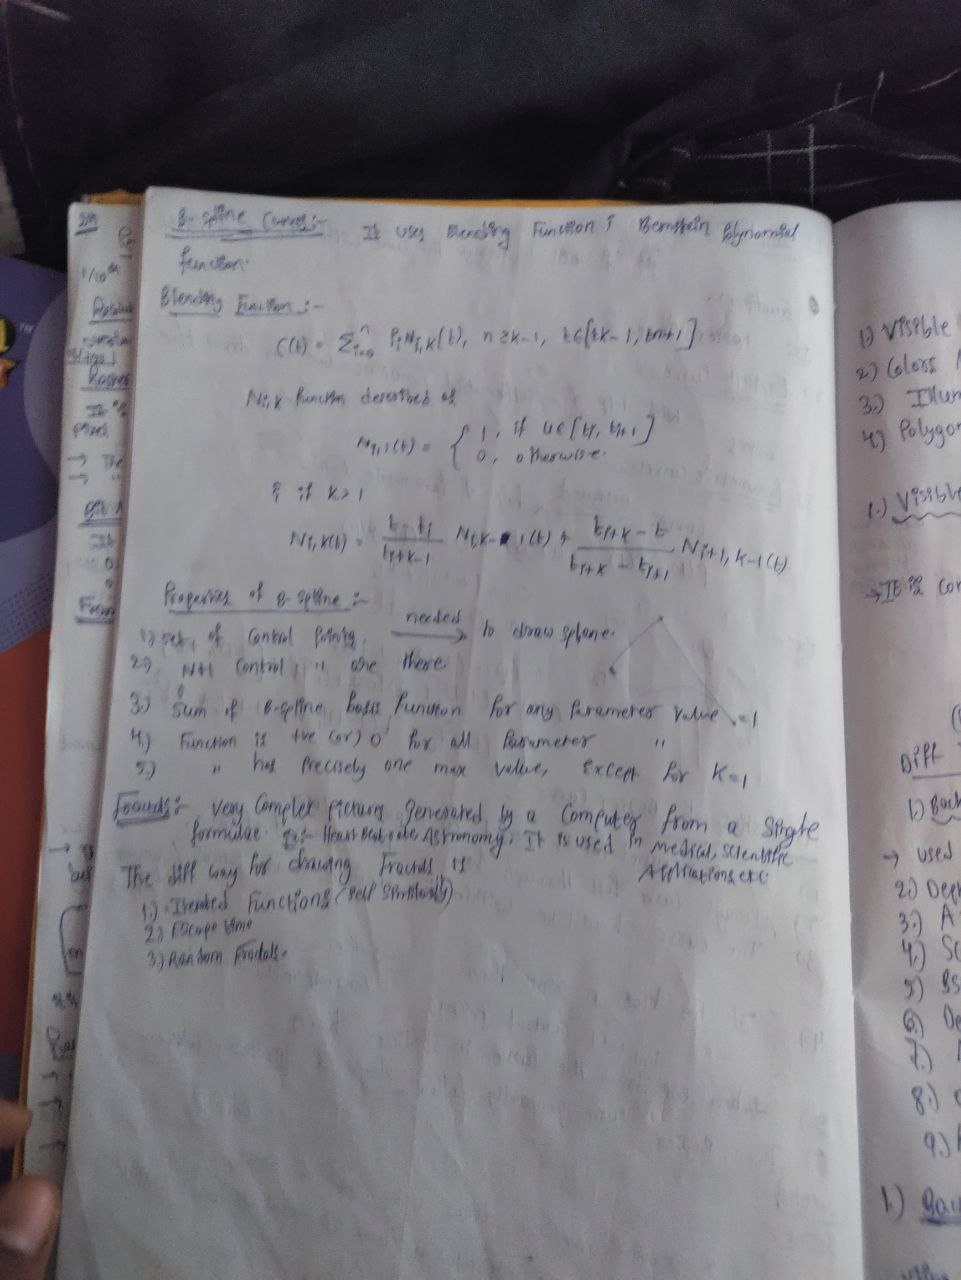 B-spline Curves:- It uses Blending Function & Bernstein Polynomial
function.
Blending Function :-
C(t) = Σⁿᵢ₌₀ Pᵢ Nᵢ,K(t), n ≥ K-1, t ∈ [tK-1, tn+1]
Ni,K function described as
Ni,1(t) = { 1, if u ∈ [ti, ti+1]
0, otherwise.
& if K>1
Ni,K(t) = t - ti / ti+K-1 Ni,K-1(t) + ti+K - t / ti+K - ti+1 Ni+1,K-1(t)
Properties of B-spline :-
1) set of control points needed → to draw splane.
2) N+1 control " are there
3.) Sum of B-spline basis function for any Parameter value = 1
4.) Function is +ve (or) 0 for all Parameter "
5.) " has Precisely one max value, except for K=1
Fractals:- very complex pictures generated by a computer from a single
formulae. Ex:- Heart Beat rate, Astronomy. It is used in medical, scientific
Applications etc.
The diff way for drawing Fractals is
1.) Iterated Functions (self similarity)
2) Escape time
3.) Random Fractals.
1) Visible
2) Colors
3.) Illum
4) Polygon
1.) Visible
→ It is con
Diff
1.) Back
→ used
2) Dep
3.) A
4.) Sc
5) BS
6.) De
7.)
8.)
9.)
1.) Back